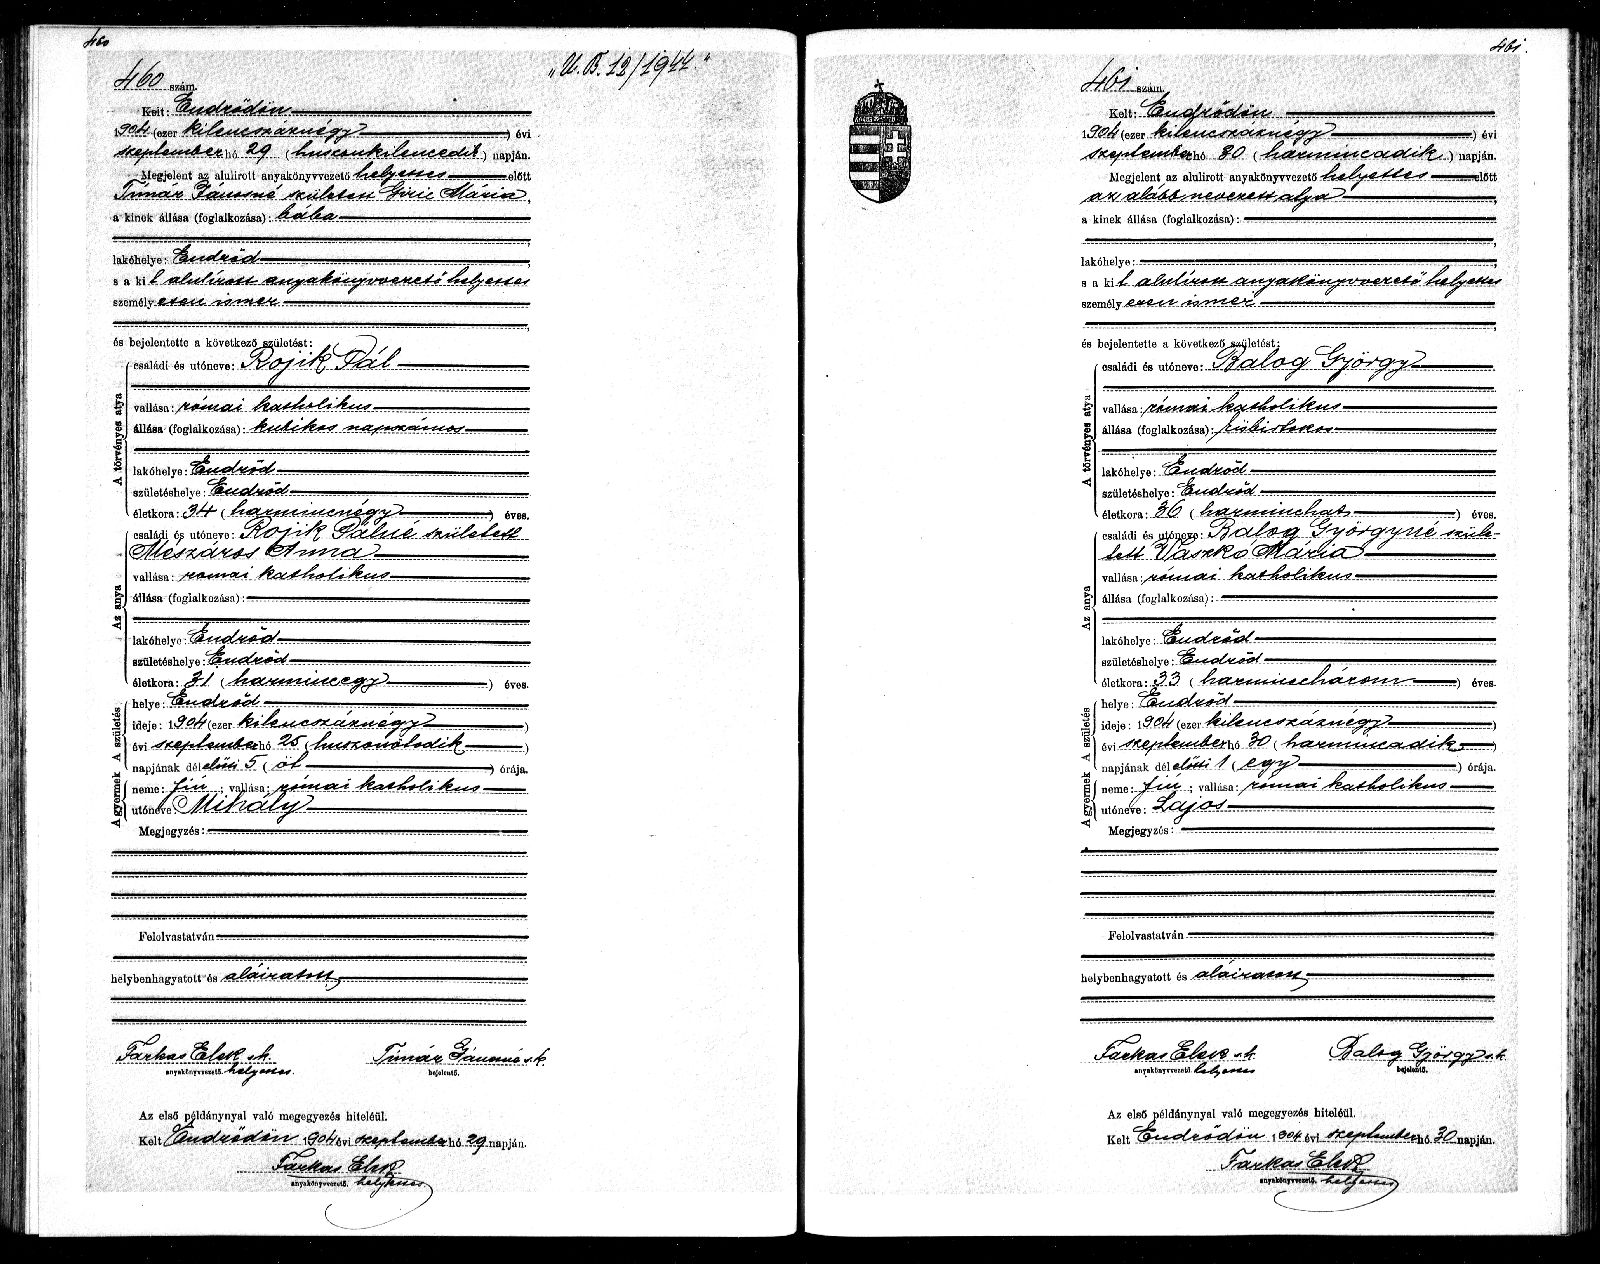 460
„U. B. 12/1944."
460 szám.
Kelt: Endrődön
1904 (ezer kilencszáznégy) évi
szeptember hó 29 (huszonkilencedik) napján.
Megjelent az alulirott anyakönyvvezető helyettes előtt
Tímár Jánosné született Mária,
a kinek állása (foglalkozása): bába
lakóhelye: Endrőd
s a kit alulírott anyakönyvvezető helyettes
személyesen ismer
és bejelentette a következő születést:
A törvényes atya
családi és utóneve: Rojik Pál
vallása: római katholikus
állása (foglalkozása): kubikos napszámos
lakóhelye: Endrőd
születéshelye: Endrőd
életkora: 34 (harmincnégy) éves.
Az anya
családi és utóneve: Rojik Pálné született
Mészáros Anna
vallása: romai katholikus
állása (foglalkozása):
lakóhelye: Endrőd
születéshelye: Endrőd
életkora: 31 (harmincegy) éves.
A születés
helye: Endrőd
ideje: 1904 (ezer kilencszáznégy)
évi szeptember hó 25 (huszonötödik)
napjának délelőtti 5 (öt) órája.
A gyermek
neme: fiú; vallása: római katholikus
utóneve: Mihály
Megjegyzés:
Felolvastatván
helybenhagyatott és aláiratott
Farkas Elek s.k. Tímár Jánosné s.k.
anyakönyvvezető. helyettes bejelentő.
Az első példánynyal való megegyezés hiteléül.
Kelt Endrődön 1904 évi szeptember hó 29 napján.
Farkas Elek
anyakönyvvezető. helyettes
461.
461 szám.
Kelt: Endrődön
1904 (ezer kilencszáznégy) évi
szeptember hó 30 (harmincadik) napján.
Megjelent az alulirott anyakönyvvezető helyettes előtt
az alább nevezett atya
a kinek állása (foglalkozása):
lakóhelye:
s a kit alulírott anyakönyvvezető helyettes
személyesen ismer
és bejelentette a következő születést:
A törvényes atya
családi és utóneve: Balog György
vallása: római katholikus
állása (foglalkozása): kisbirtokos
lakóhelye: Endrőd
születéshelye: Endrőd
életkora: 36 (harminchat) éves.
Az anya
családi és utóneve: Balog Györgyné szüle-
tett Vaszkó Mária
vallása: római katholikus
állása (foglalkozása):
lakóhelye: Endrőd
születéshelye: Endrőd
életkora: 33 (harminchárom) éves.
A születés
helye: Endrőd
ideje: 1904 (ezer kilencszáznégy)
évi szeptember hó 30 (harmincadik)
napjának délelőtti 1 (egy) órája.
A gyermek
neme: fiú; vallása: római katholikus
utóneve: Lajos
Megjegyzés:
Felolvastatván
helybenhagyatott és aláiratott
Farkas Elek s.k. Balog György s.k.
anyakönyvvezető. helyettes bejelentő.
Az első példánynyal való megegyezés hiteléül.
Kelt Endrődön 1904 évi szeptember hó 30 napján.
Farkas Elek
anyakönyvvezető. helyettes